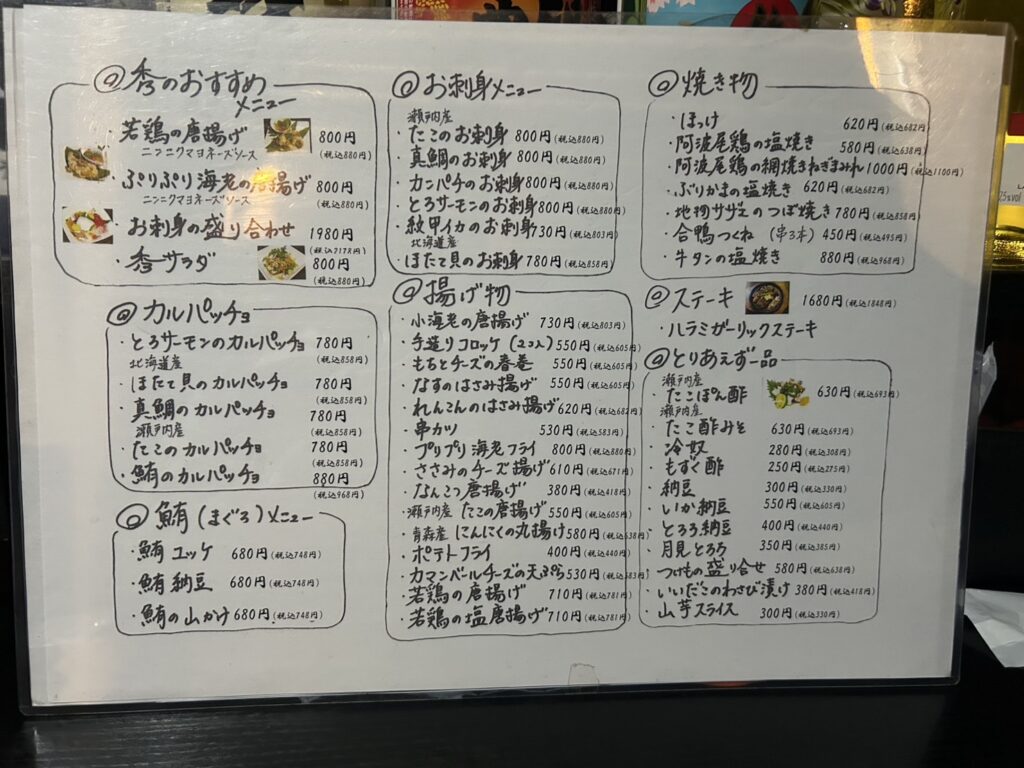 秀のおすすめ
メニュー
・若鶏の唐揚げ 800円
ニンニクマヨネーズソース (税込880円)
・ぷりぷり海老の唐揚げ 800円
ニンニクマヨネーズソース (税込880円)
・お刺身の盛り合わせ 1980円
(税込2178円)
・秀サラダ 800円
(税込880円)
カルパッチョ
・とろサーモンのカルパッチョ 780円
(税込858円)
北海道産
・ほたて貝のカルパッチョ 780円
(税込858円)
・真鯛のカルパッチョ 780円
(税込858円)
瀬戸内産
・たこのカルパッチョ 780円
(税込858円)
・鮪のカルパッチョ 880円
(税込968円)
鮪(まぐろ)メニュー
・鮪ユッケ 680円(税込748円)
・鮪納豆 680円(税込748円)
・鮪の山かけ 680円(税込748円)
お刺身メニュー
瀬戸内産
・たこのお刺身 800円(税込880円)
・真鯛のお刺身 800円(税込880円)
・カンパチのお刺身 800円(税込880円)
・とろサーモンのお刺身 800円(税込880円)
・紋甲イカのお刺身 730円(税込803円)
北海道産
・ほたて貝のお刺身 780円(税込858円)
揚げ物
・小海老の唐揚げ 730円(税込803円)
・手造りコロッケ(2コ入) 550円(税込605円)
・もちとチーズの春巻 550円(税込605円)
・なすのはさみ揚げ 550円(税込605円)
・れんこんのはさみ揚げ 620円(税込682円)
・串カツ 530円(税込583円)
・プリプリ海老フライ 800円(税込880円)
・ささみのチーズ揚げ 610円(税込671円)
・なんこつ唐揚げ 380円(税込418円)
・瀬戸内産 たこの唐揚げ 550円(税込605円)
・青森産 にんにくの丸揚げ 580円(税込638円)
・ポテトフライ 400円(税込440円)
・カマンベールチーズの天ぷら 530円(税込583円)
・若鶏の唐揚げ 710円(税込781円)
・若鶏の塩唐揚げ 710円(税込781円)
焼き物
・ほっけ 620円(税込682円)
・阿波尾鶏の塩焼き 580円(税込638円)
・阿波尾鶏の網焼きねぎまみれ 1000円(税込1100円)
・ぶりかまの塩焼き 620円(税込682円)
・地物サザエのつぼ焼き 780円(税込858円)
・合鴨つくね (串3本) 450円(税込495円)
・牛タンの塩焼き 880円(税込968円)
ステーキ 1680円(税込1848円)
・ハラミガーリックステーキ
とりあえず一品
瀬戸内産
・たこぽん酢 630円(税込693円)
瀬戸内産
・たこ酢みそ 630円(税込693円)
・冷奴 280円(税込308円)
・もずく酢 250円(税込275円)
・納豆 300円(税込330円)
・いか納豆 550円(税込605円)
・とろろ納豆 400円(税込440円)
・月見とろろ 350円(税込385円)
・つけもの盛り合せ 580円(税込638円)
・いいだこのわさび漬け 380円(税込418円)
・山芋スライス 300円(税込330円)